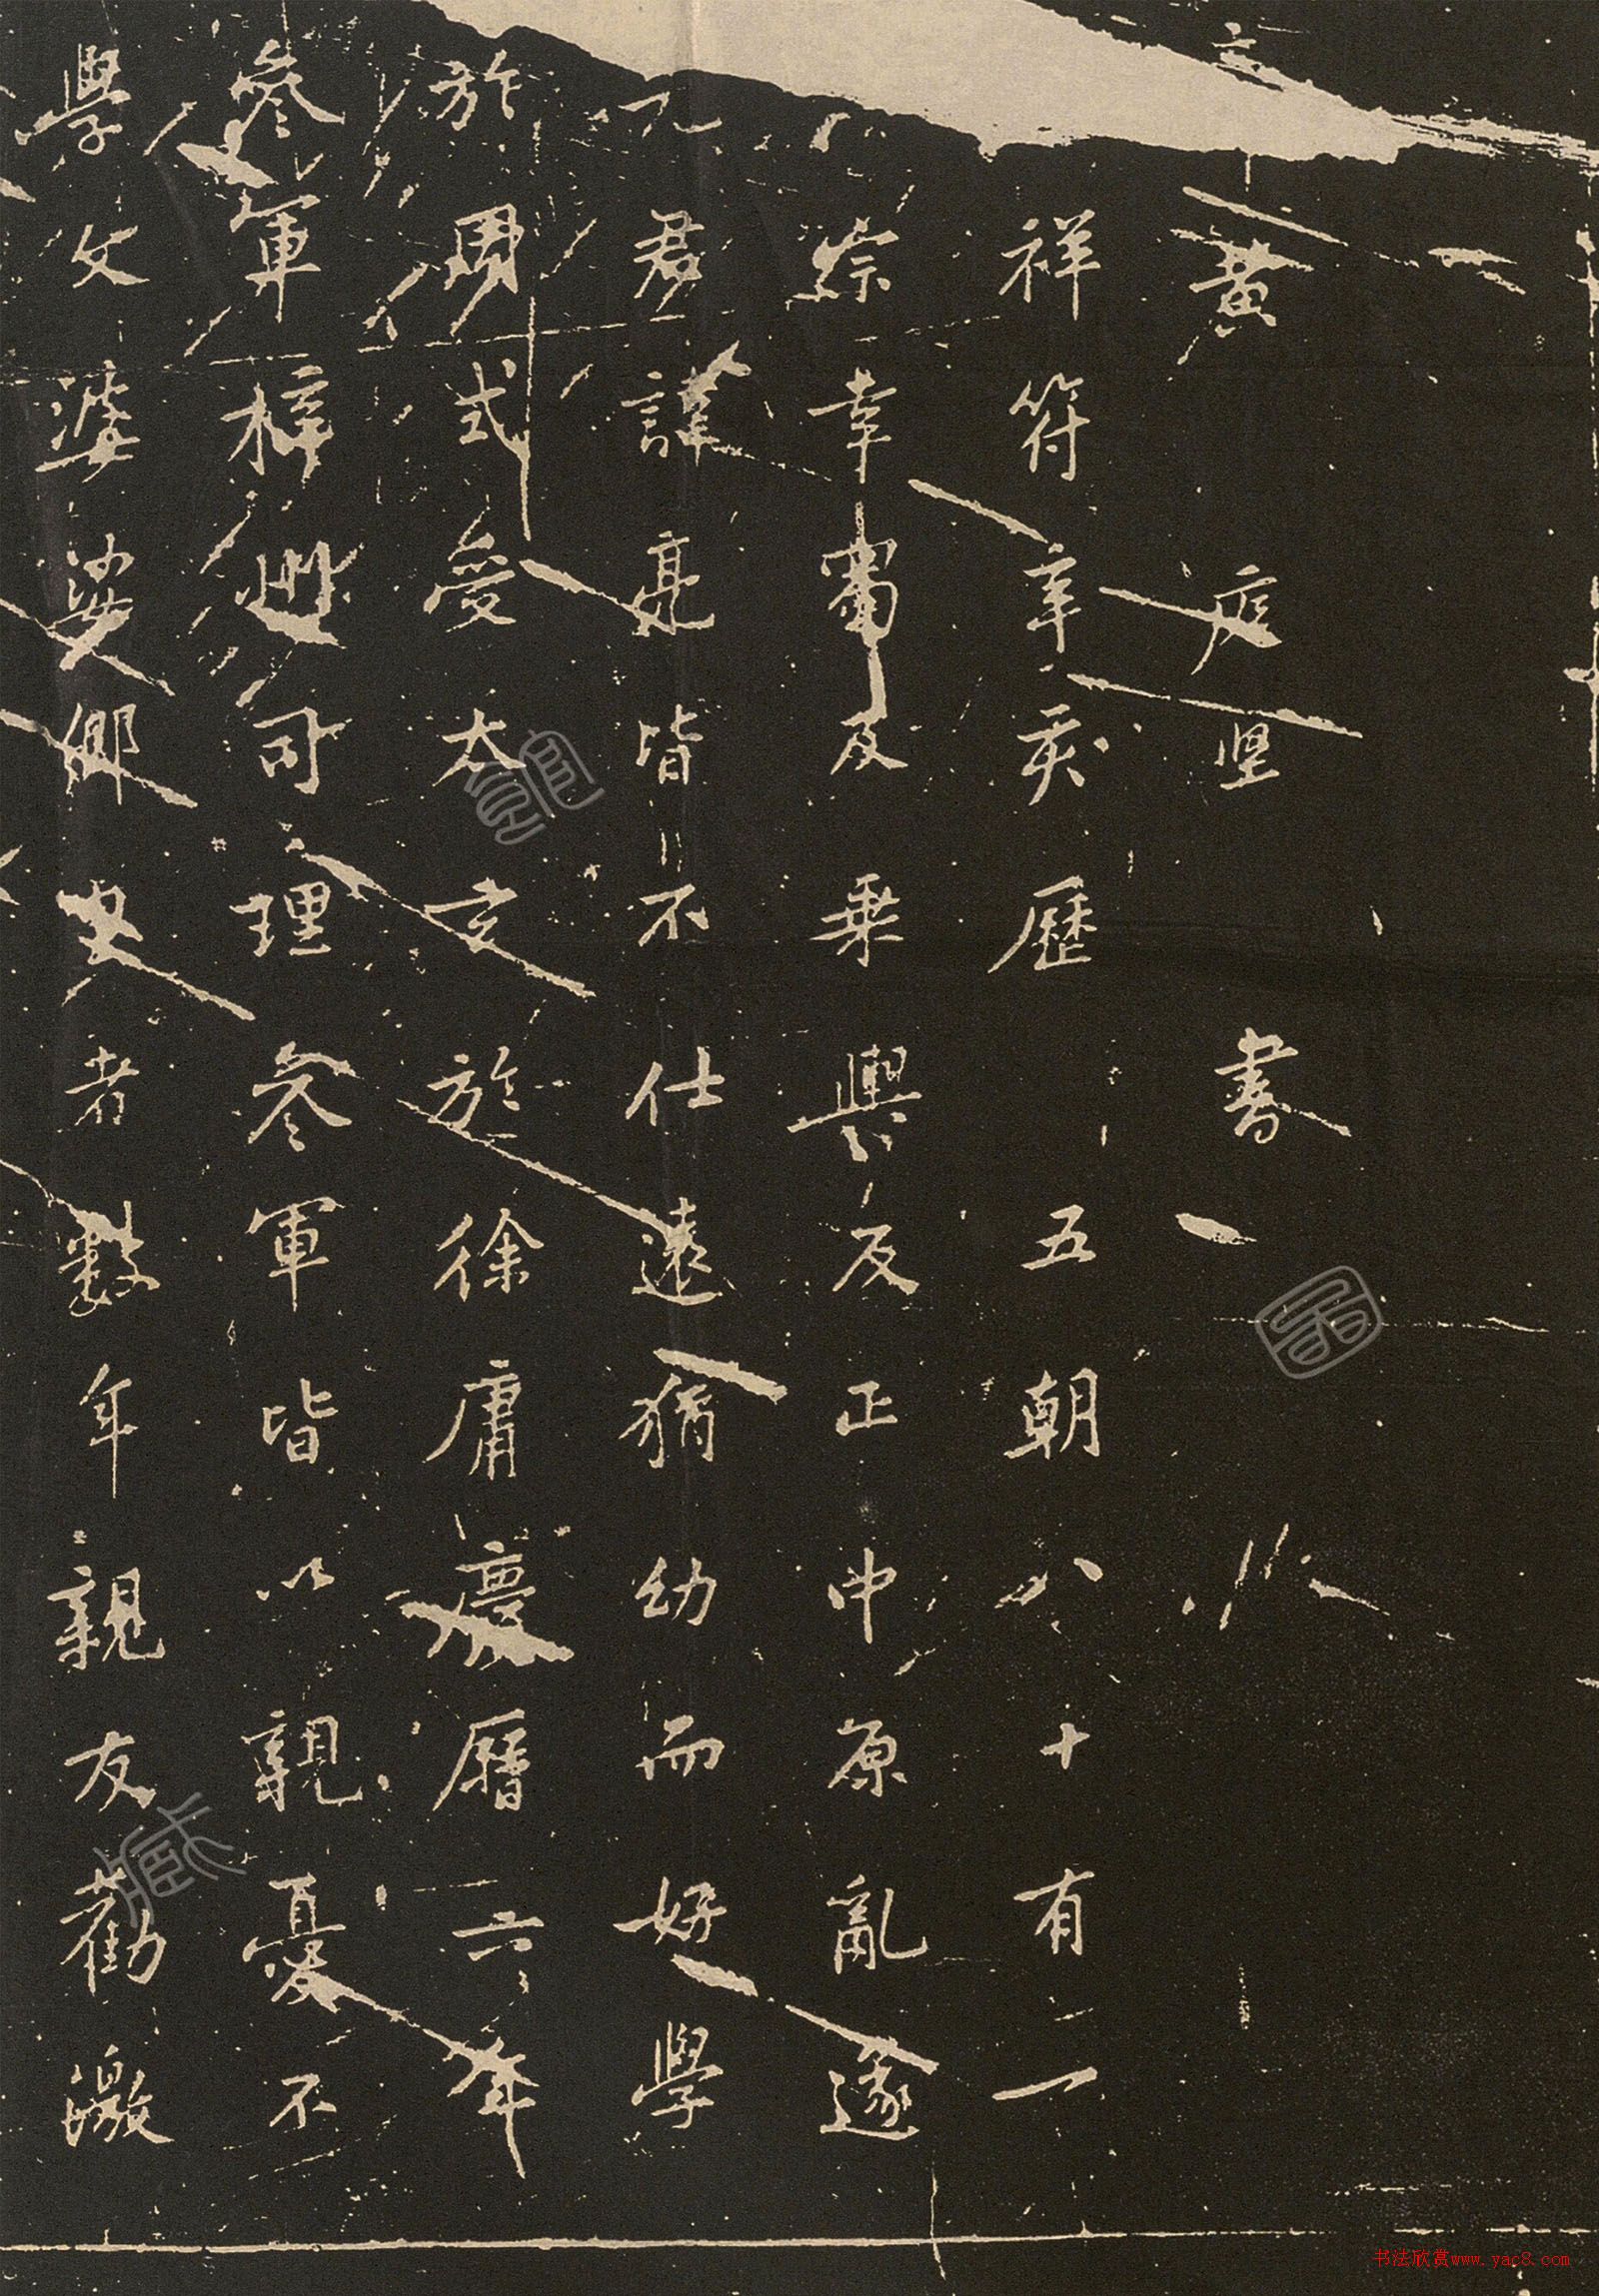 黄 庭坚 書
祥符辛亥歷 五朝八十有一
宗幸蜀及乗輿反正中原亂遂
君諱亮皆不仕遠猶幼而好學
於周式受太玄於徐庸慶曆六年
參軍梓州司理參軍皆以親憂不
學文婆娑鄉里者数年親友勸激
书法欣赏www.yac8.com